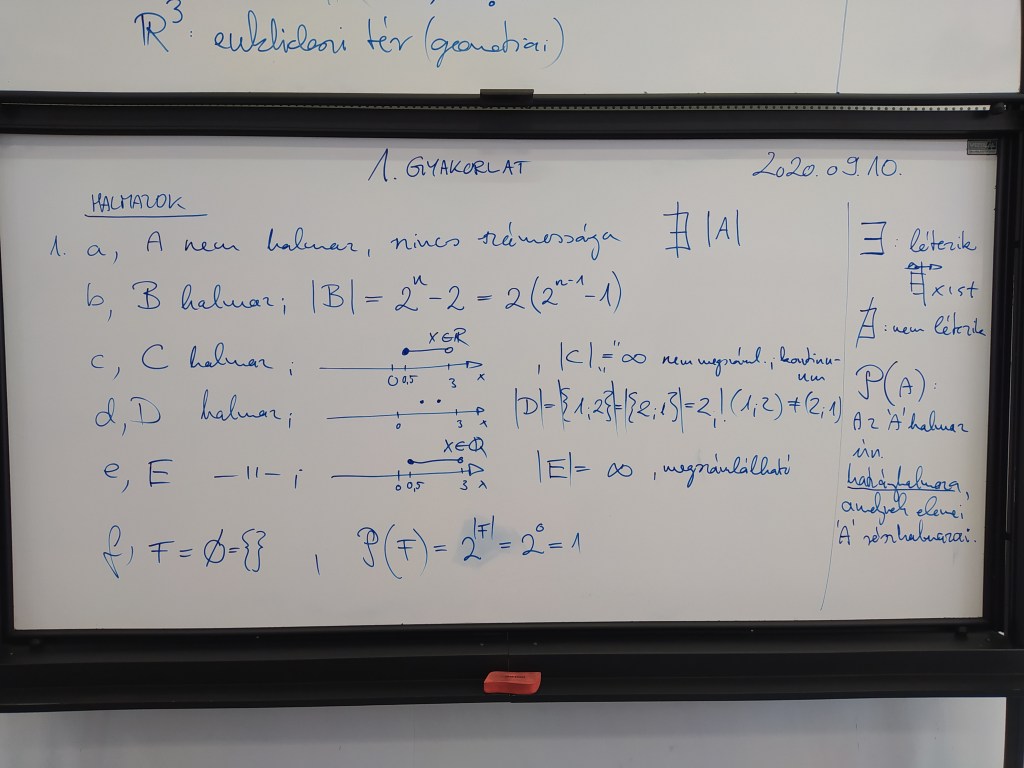 ℝ³: euklideszi tér (geometriai)
1. GYAKORLAT 2020.09.10.
HALMAZOK
1. a, A nem halmaz, nincs számossága ∄ |A|
b, B halmaz; |B| = 2ⁿ - 2 = 2(2ⁿ⁻¹ - 1)
c, C halmaz; 0 0,5 3 x x∈ℝ , |C| "=" ∞ nem megszáml.; kontinu-
num
d, D halmaz; 0 3 x |D| = |{1;2}| = |{2;1}| = 2, ! (1;2) ≠ (2;1)
e, E —"— ; 0 0,5 3 x x∈ℚ |E| = ∞, megszámlálható
f, F = ∅ = {} , P(F) = 2^|F| = 2⁰ = 1
∃: létezik
∃xist
∄: nem létezik
P(A):
Az 'A' halmaz
ún.
hatványhalmaza,
amelynek elemei
'A' részhalmazai.